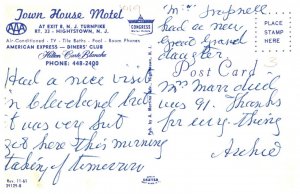 Town House Motel
AAA
AT EXIT 8, N. J. TURNPIKE
RT. 33 - HIGHTSTOWN, N. J.
Air-Conditioned - TV - Tile Baths - Pool - Room Phones
AMERICAN EXPRESS - DINERS' CLUB
Hilton Carte Blanche
PHONE: 448-2400
CONGRESS
Had a nice visit
in Cleveland but
it was very hot
here this morning
taking off tomorrow
Rev. 11-61
39129-B
Post Card
PLACE
STAMP
HERE
Mr.
had a new
Great Grand
daughter
Mr
was 91. Thanks
for everything
Archie
3